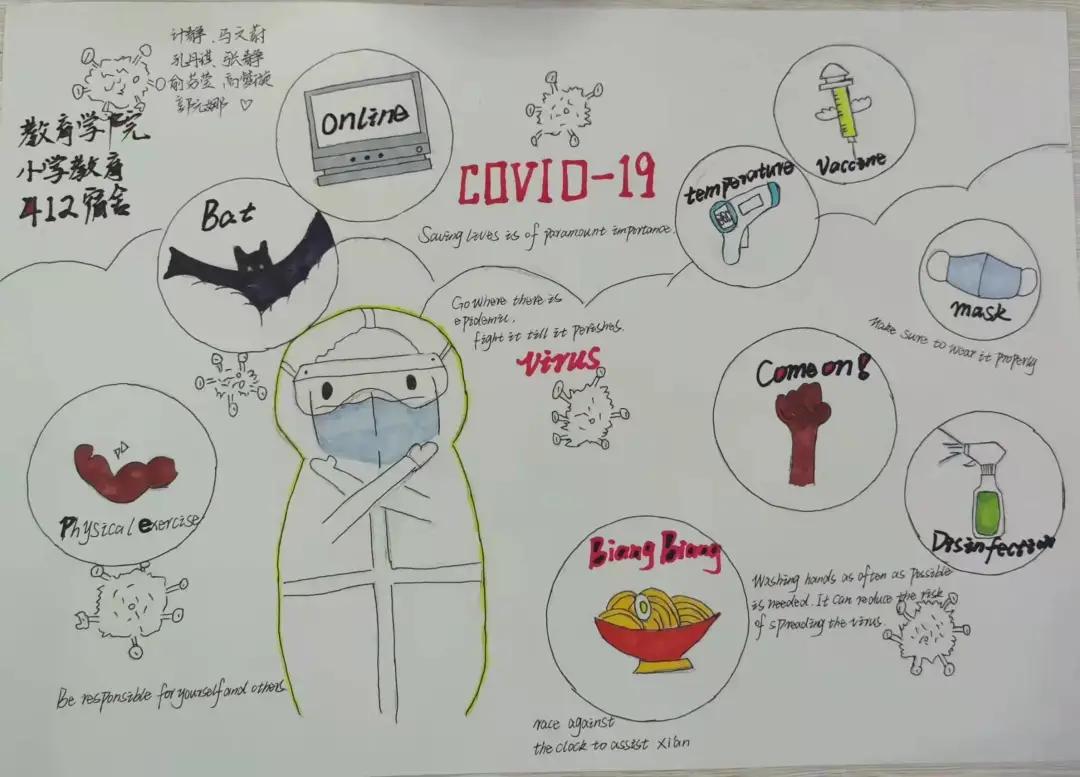 计静 马文蔚
孔丹琪 张静
俞芳莹
教育学院
小学教育
412宿舍
online
COVID-19
Saving lives is of paramount importance.
temperature
Vaccine
Bat
Go where there is
epidemic,
fight it till it perishes.
virus
mask
Make sure to wear it properly
Come on!
Physical exercise
Disinfection
Biang Biang
Washing hands as often as possible
is needed. It can reduce the risk
of spreading the virus.
Be responsible for yourself and others
race against
the clock to assist xi'an